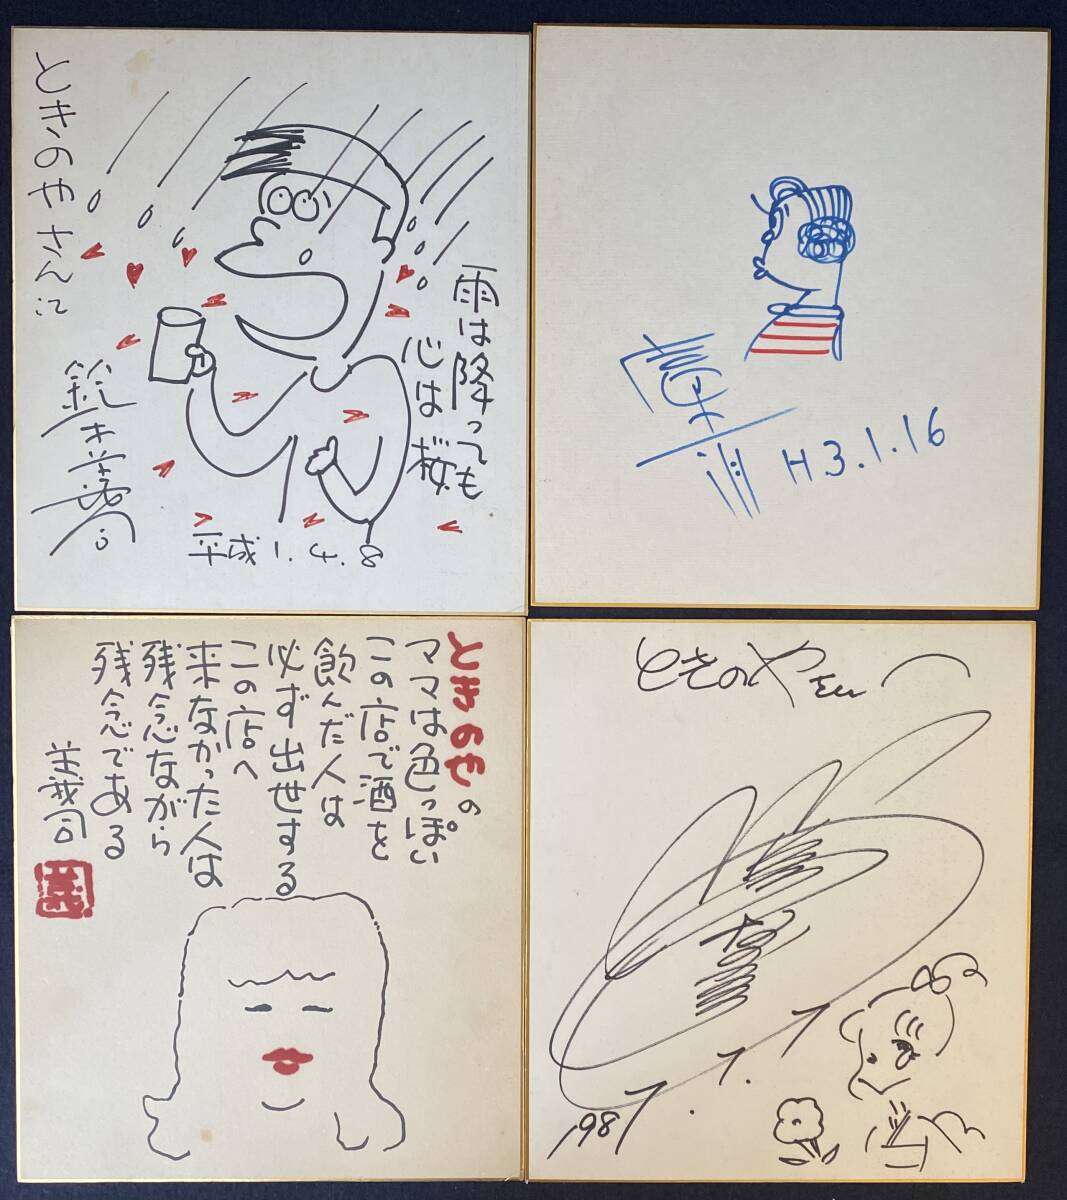 ときのやさん江
雨は降っても
心は桜
鈴木義司
平成1.4.8
H3.1.16
ときのやの
ママは色っぽい
この店で酒を
飲んだ人は
必ず出世する
この店へ
来なかった人は
残念ながら
残念である
義司
ときのやさん江
1987.7.7